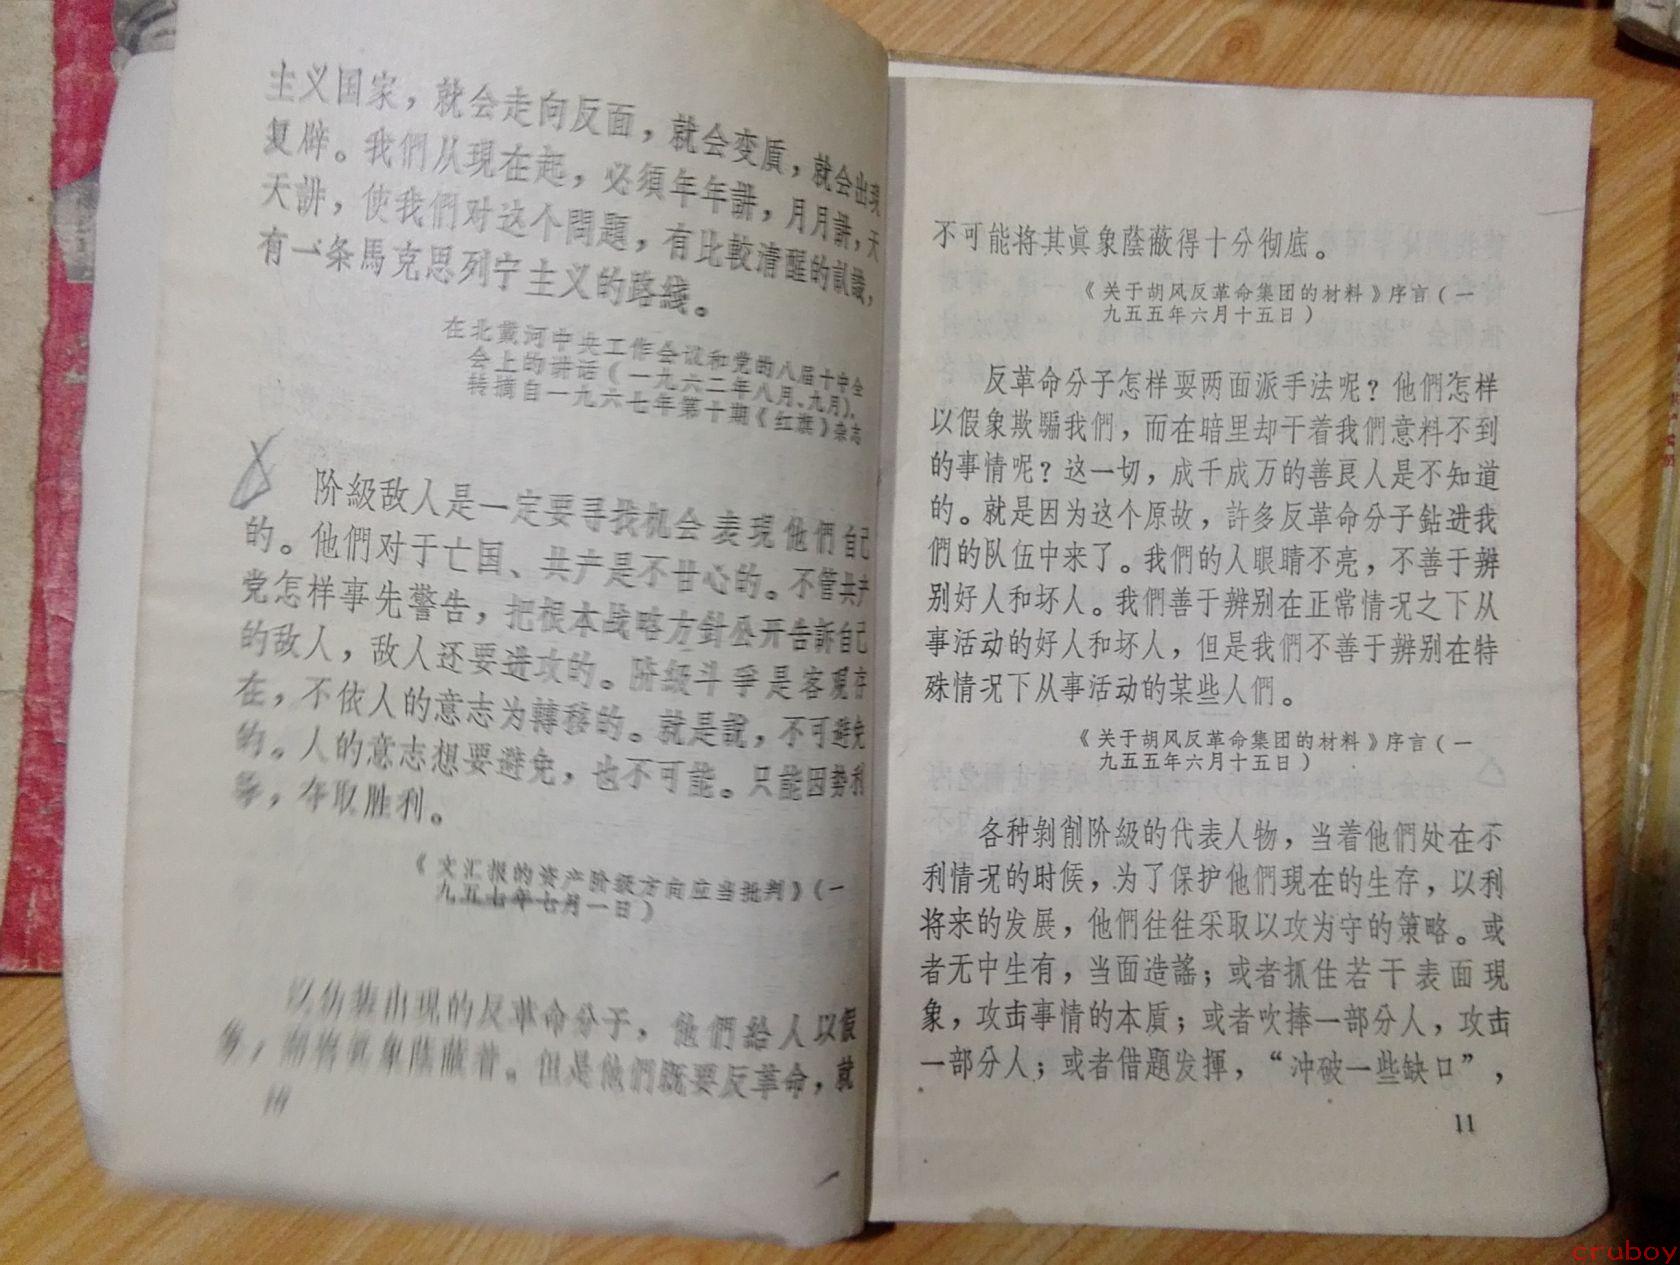 主义国家，就会走向反面，就会变质，就会出現
复辟。我們从現在起，必須年年講，月月講，天
天講，使我們对这个問題，有比較清醒的訊識，
有一条馬克思列宁主义的路綫。
在北戴河中央工作会议和党的八届十中全
会上的讲话（一九六二年八月、九月）。
转摘自一九六七年第十期《红旗》杂志
阶級敌人是一定要寻找机会表現他們自己
的。他們对于亡国、共产是不甘心的。不管共产
党怎样事先警告，把根本战略方針公开告訴自己
的敌人，敌人还要进攻的。阶級斗爭是客观存
在，不依人的意志为轉移的。就是說，不可避免
的。人的意志想要避免，也不可能。只能因势利
导，夺取胜利。
《文汇报的资产阶级方向应当批判》（一
九五七年七月一日）
以伪装出現的反革命分子，他們給人以假
象，而将眞象蔭蔽着。但是他們既要反革命，就
10
不可能将其眞象蔭蔽得十分彻底。
《关于胡风反革命集团的材料》序言（一
九五五年六月十五日）
反革命分子怎样耍两面派手法呢？他們怎样
以假象欺騙我們，而在暗里却干着我們意料不到
的事情呢？这一切，成千成万的善良人是不知道
的。就是因为这个原故，許多反革命分子鉆进我
們的队伍中来了。我們的人眼睛不亮，不善于辨
别好人和坏人。我們善于辨别在正常情况之下从
事活动的好人和坏人，但是我們不善于辨别在特
殊情况下从事活动的某些人們。
《关于胡风反革命集团的材料》序言（一
九五五年六月十五日）
各种剝削阶級的代表人物，当着他們处在不
利情况的时候，为了保护他們現在的生存，以利
将来的发展，他們往往采取以攻为守的策略。或
者无中生有，当面造謠；或者抓住若干表面現
象，攻击事情的本质；或者吹捧一部分人，攻击
一部分人；或者借題发揮，“冲破一些缺口”，
11
cruboy